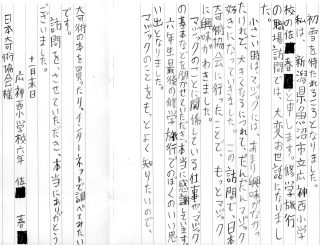 初雪を待たれるころとなりました。
私は、新潟県魚沼市立広神西小学
校の佐 春 と申します。修学旅行
の職場訪問では、大変お世話になりまし
た。
小さい時、マジックには、あまり興味がなかっ
たけれど、大きくなるにつれて、だんだんマジックが
好きになっていきました。この訪問で、日本
奇術協会に行ったことで、もっとマジック
に興味がわきました。
マジックのことや、関係している仕事やマジック
の基本など聞けて、本当に感謝しています。
六年生最後の修学旅行でのぼくのいい思
い出となりました。
マジックのことを、もっとよく知りたいので、
奇術本を買ったり、インターネットで調べてみたい
です。
訪問をさせていただき、本当にありがとう
ございました。
十一月末日
広神西小学校六年 佐 春
日本奇術協会様